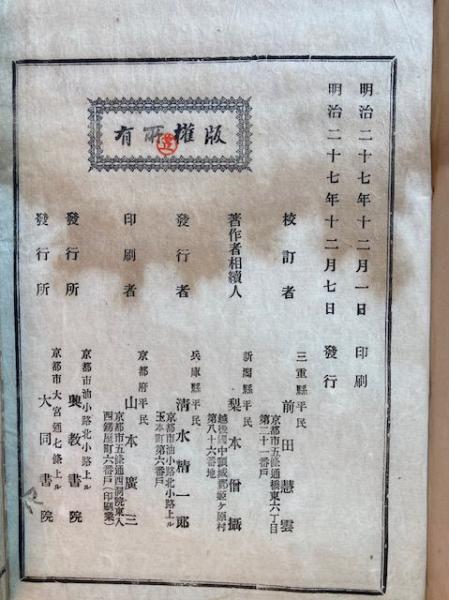 明治二十七年十二月一日印刷
明治二十七年十二月七日發行
版權所有
校訂者
三重縣平民
前田慧雲
京都市五條通橋東六丁目
第二十一番戸
著作者相續人
新潟縣平民
梨本僧攝
越後國中頸城郡
原村
第八十六番地
發行者
兵庫縣平民
清水精一郎
京都市油小路北小路上ル
玉本町第六番戸
印刷者
京都府平民
山本廣三
京都市五條通西洞院東入
西錺屋町六番戸(印刷業)
發行所
京都市油小路北小路上ル
興教書院
發行所
京都市大宮通七條上ル
大同書院